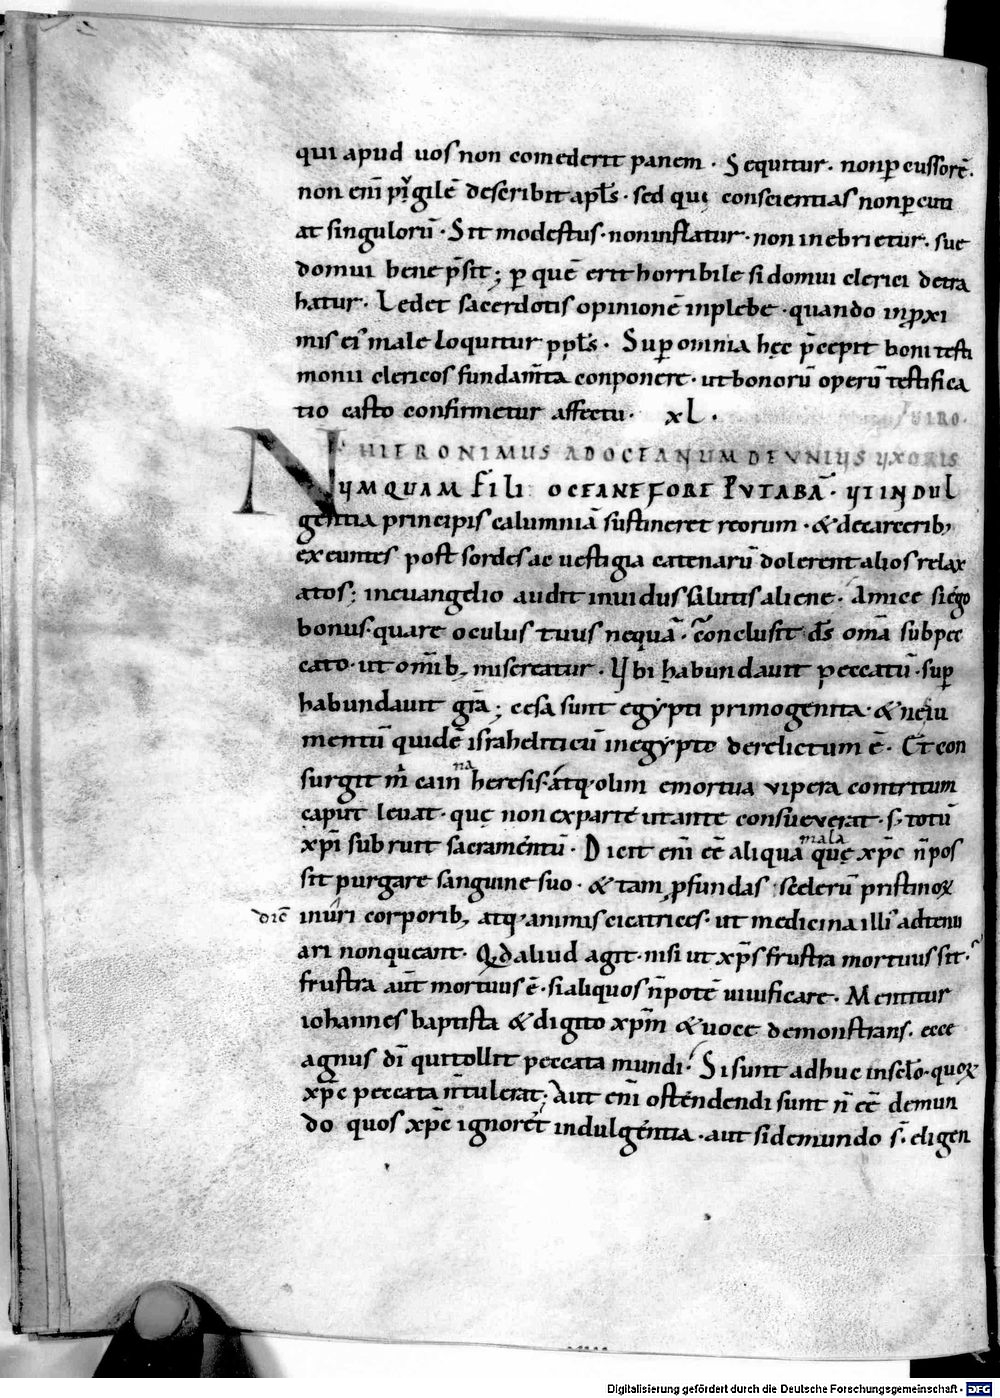 qui apud uos non comederit panem · Sequitur · non ꝑcussorē.
non enī pẏgilē describit apl̄s · sed qui conscientias non ꝑcuti
at singulorū · Sit modestus · non inflatur · non inebrietur · sue
domui bene p̄sit ; ꝑ quē erit horribile si domui clerici detra
hatur · Ledet sacerdotis opinionē in plebe · quando in ꝓxi
mis ei᾽ male loquitur ppl̄s · Suꝑ omnia hęc p̄cepit boni testi
monii clericos fundam̄ta conponere · ut bonorū operū testifica
tio casto confirmetur affectu · xL · UIRO.
HIERONIMUS AD OCEANUM DE VNIUS VXORIS
NUMQUAM FILI OCEANE FORE PVTABĀ · VT INDUL
gentia principis calumniā sustineret reorum · & de carcerib;
exeuntes post sordes ac uestigia catenarū dolerent alios relax
atos ; in euangelio audit inuidus salutis aliene · Amice si ego
bonus · quare oculus tuus nequā · conclusit d̄s om̄a sub pec
cato · ut om̄ib; misereatur · Ubi habundauit peccatū · suꝑ
habundauit gr̄a ; cesa sunt egẏpti primogenita · & ne iu
mentū quidē israheliticū in egẏpto derelictum ē · Et con
surgit m̄ cain na heresis · atq· olim emortua vipera contritum
caput leuat · quę non ex parte ut ante consueuerat · s; totū
xp̄i subruit sacramentū · Dicit enī eē aliquā mala quę xp̄c n̄ pos
sit purgare sanguine suo · & tam ꝓfundas scelerū pristinoꝝ
dicē inuri corporib; atq· animis cicatrices · ut medicina illi᾽ adtenu
ari non queant · Qđ aliud agit · nisi ut xp̄s frustra mortuus sit ·
frustra aūt mortuus ē · si aliquos n̄ potē uiuificare · Mentitur
iohannes baptista & digito xp̄m & uoce demonstrans · ecce
agnus dī qui tollit peccata mundi · Si sunt adhuc in scl̄o · quoꝝ
xp̄c peccata n̄ tulerat ; Aut enī ostendendi sunt n̄ eē de mun
do quos xp̄c ignoret indulgentia · aut si de mundo s̄ · eligen